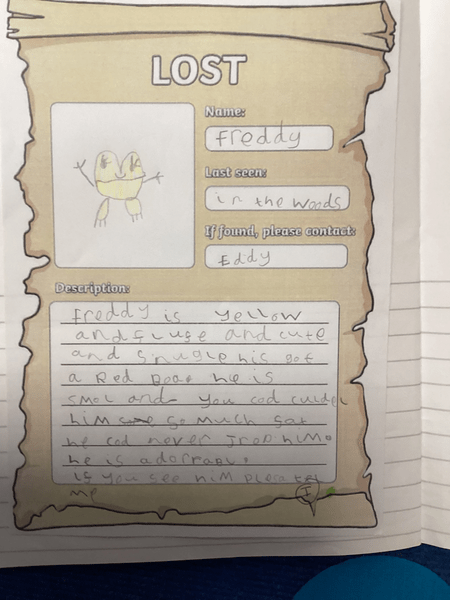 LOST
Name:
freddy
Last seen:
in the woods
If found, please contact:
Eddy
Description:
freddy is yellow
and flufe and cute
and snugle his got
a Red Boa he is
smol and you cod cuddel
him so much sat
he cod never Drop him.
he is adorrabl.
if you see him please tel
me